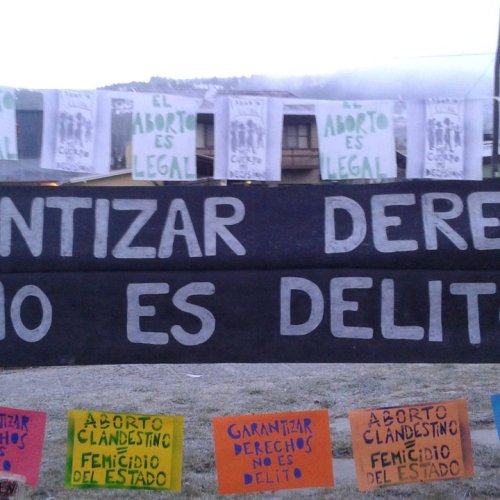 EL
ABORTO
ES
LEGAL
CUERPO
DECISION
EL
ABORTO
ES
LEGAL
CUERPO
DECISION
NTIZAR DERE
NO ES DELIT
NTIZAR
CHOS
ES
ABORTO
CLANDESTINO
=
FEMICIDIO
DEL ESTADO
GARANTIZAR
DERECHOS
NO ES
DELITO
ABORTO
CLANDESTINO
=
FEMICIDIO
DEL ESTADO